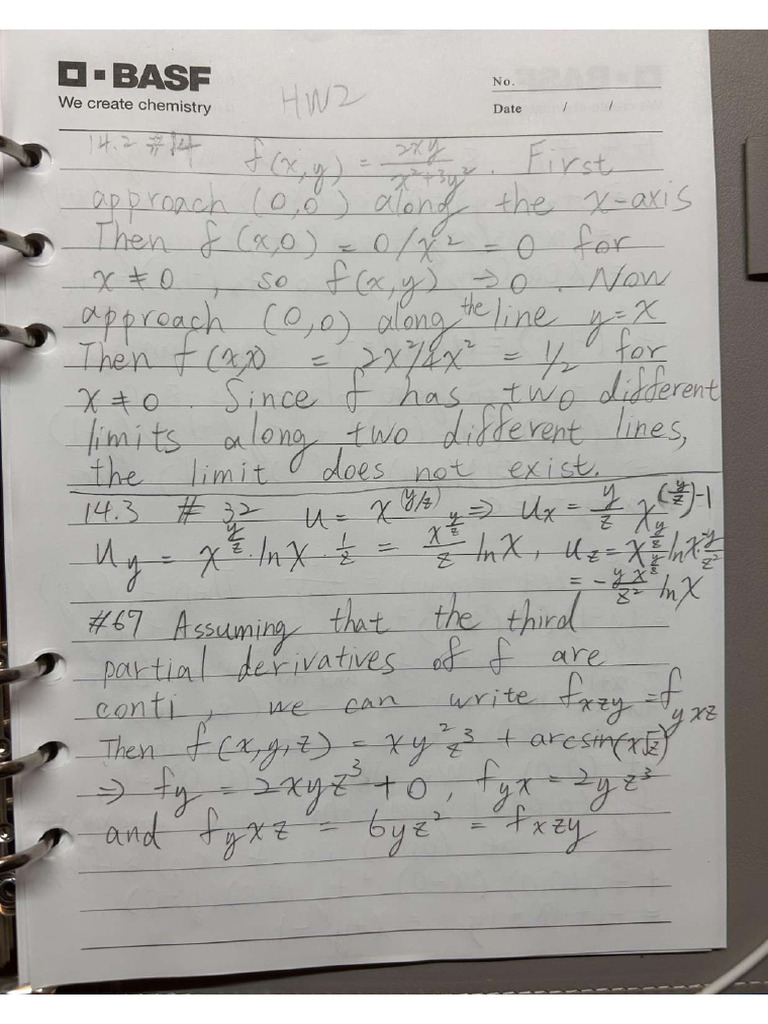 BASF
We create chemistry
HW2
No.
Date / /
14.2 #14 f(x,y) = 2xy/(x²+3y²). First
approach (0,0) along the x-axis
Then f(x,0) = 0/x² = 0 for
x ≠ 0, so f(x,y) → 0. Now
approach (0,0) along the line y=x
Then f(x,x) = 2x²/4x² = 1/2 for
x ≠ 0. Since f has two different
limits along two different lines,
the limit does not exist.
14.3 # 32 u = x^(y/z) ⇒ u_x = y/z x^((y/z)-1)
u_y = x^(y/z) · ln x · 1/z = x^(y/z)/z ln x, u_z = x^(y/z) ln x · -y/z²
= - y x^(y/z)/z² ln x
#67 Assuming that the third
partial derivatives of f are
conti, we can write f_xzy = f_yxz
Then f(x,y,z) = xy²z³ + arcsin(x√z)
⇒ f_y = 2xyz³ + 0, f_yx = 2yz³
and f_yxz = 6yz² = f_xzy